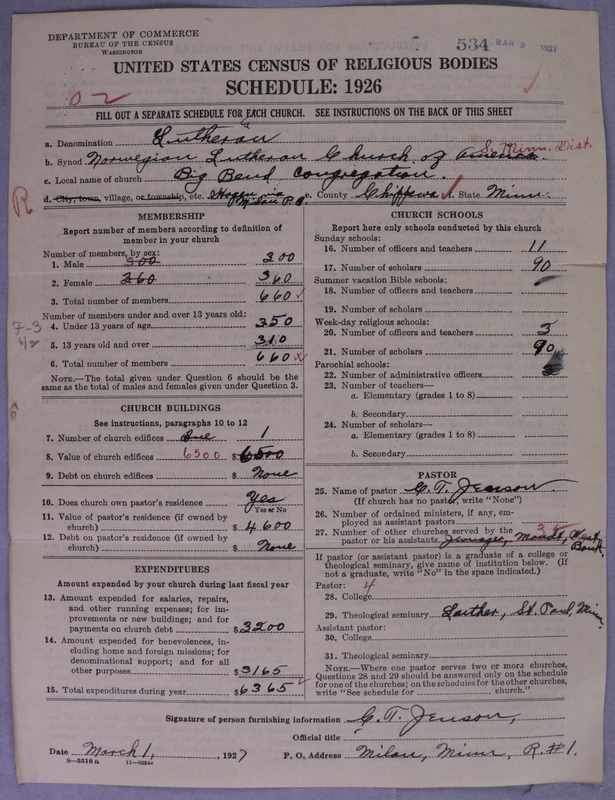 DEPARTMENT OF COMMERCE
BUREAU OF THE CENSUS
WASHINGTON
534 MAR 3 1927
UNITED STATES CENSUS OF RELIGIOUS BODIES
SCHEDULE: 1926
02
FILL OUT A SEPARATE SCHEDULE FOR EACH CHURCH. SEE INSTRUCTIONS ON THE BACK OF THIS SHEET
a. Denomination Lutheran
b. Synod Norwegian Lutheran Church of America. S. Minn. Dist.
c. Local name of church Big Bend Congregation.
R d. City, town, village, or township, etc. via Milan e. County Chippewa f. State Minn.
MEMBERSHIP
Report number of members according to definition of
member in your church
Number of members, by sex:
1. Male 300 300
2. Female 360 360
3. Total number of members 660
Number of members under and over 13 years old:
4. Under 13 years of age 350
5. 13 years old and over 310
6. Total number of members 660
NOTE.—The total given under Question 6 should be the
same as the total of males and females given under Question 3.
CHURCH BUILDINGS
See instructions, paragraphs 10 to 12
7. Number of church edifices One 1
8. Value of church edifices 6500 $ 6500
9. Debt on church edifices $ None
10. Does church own pastor's residence Yes
Yes or No
11. Value of pastor's residence (if owned by
church) $ 4600
12. Debt on pastor's residence (if owned by
church) $ None
EXPENDITURES
Amount expended by your church during last fiscal year
13. Amount expended for salaries, repairs,
and other running expenses; for im-
provements or new buildings; and for
payments on church debt $ 3200
14. Amount expended for benevolences, in-
cluding home and foreign missions; for
denominational support; and for all
other purposes $ 3165
15. Total expenditures during year $ 6365
CHURCH SCHOOLS
Report here only schools conducted by this church
Sunday schools:
16. Number of officers and teachers 11
17. Number of scholars 90
Summer vacation Bible schools:
18. Number of officers and teachers
19. Number of scholars
Week-day religious schools:
20. Number of officers and teachers 3
21. Number of scholars 90
Parochial schools:
22. Number of administrative officers
23. Number of teachers—
a. Elementary (grades 1 to 8)
b. Secondary
24. Number of scholars—
a. Elementary (grades 1 to 8)
b. Secondary
PASTOR
25. Name of pastor C. T. Jenson
(If church has no pastor, write "None")
26. Number of ordained ministers, if any, em-
ployed as assistant pastors
27. Number of other churches served by the
pastor or his assistants
If pastor (or assistant pastor) is a graduate of a college or
theological seminary, give name of institution below. (If
not a graduate, write "No" in the space indicated.)
Pastor: 4
28. College
29. Theological seminary Luther, St. Paul, Minn.
Assistant pastor:
30. College
31. Theological seminary
NOTE.—Where one pastor serves two or more churches,
Questions 28 and 29 should be answered only on the schedule
for one of the churches; on the schedules for the other churches,
write "See schedule for church."
Signature of person furnishing information C. T. Jenson,
Official title
Date March 1, 1927 P. O. Address Milan, Minn, R. #1.
8-5518a 11-9054